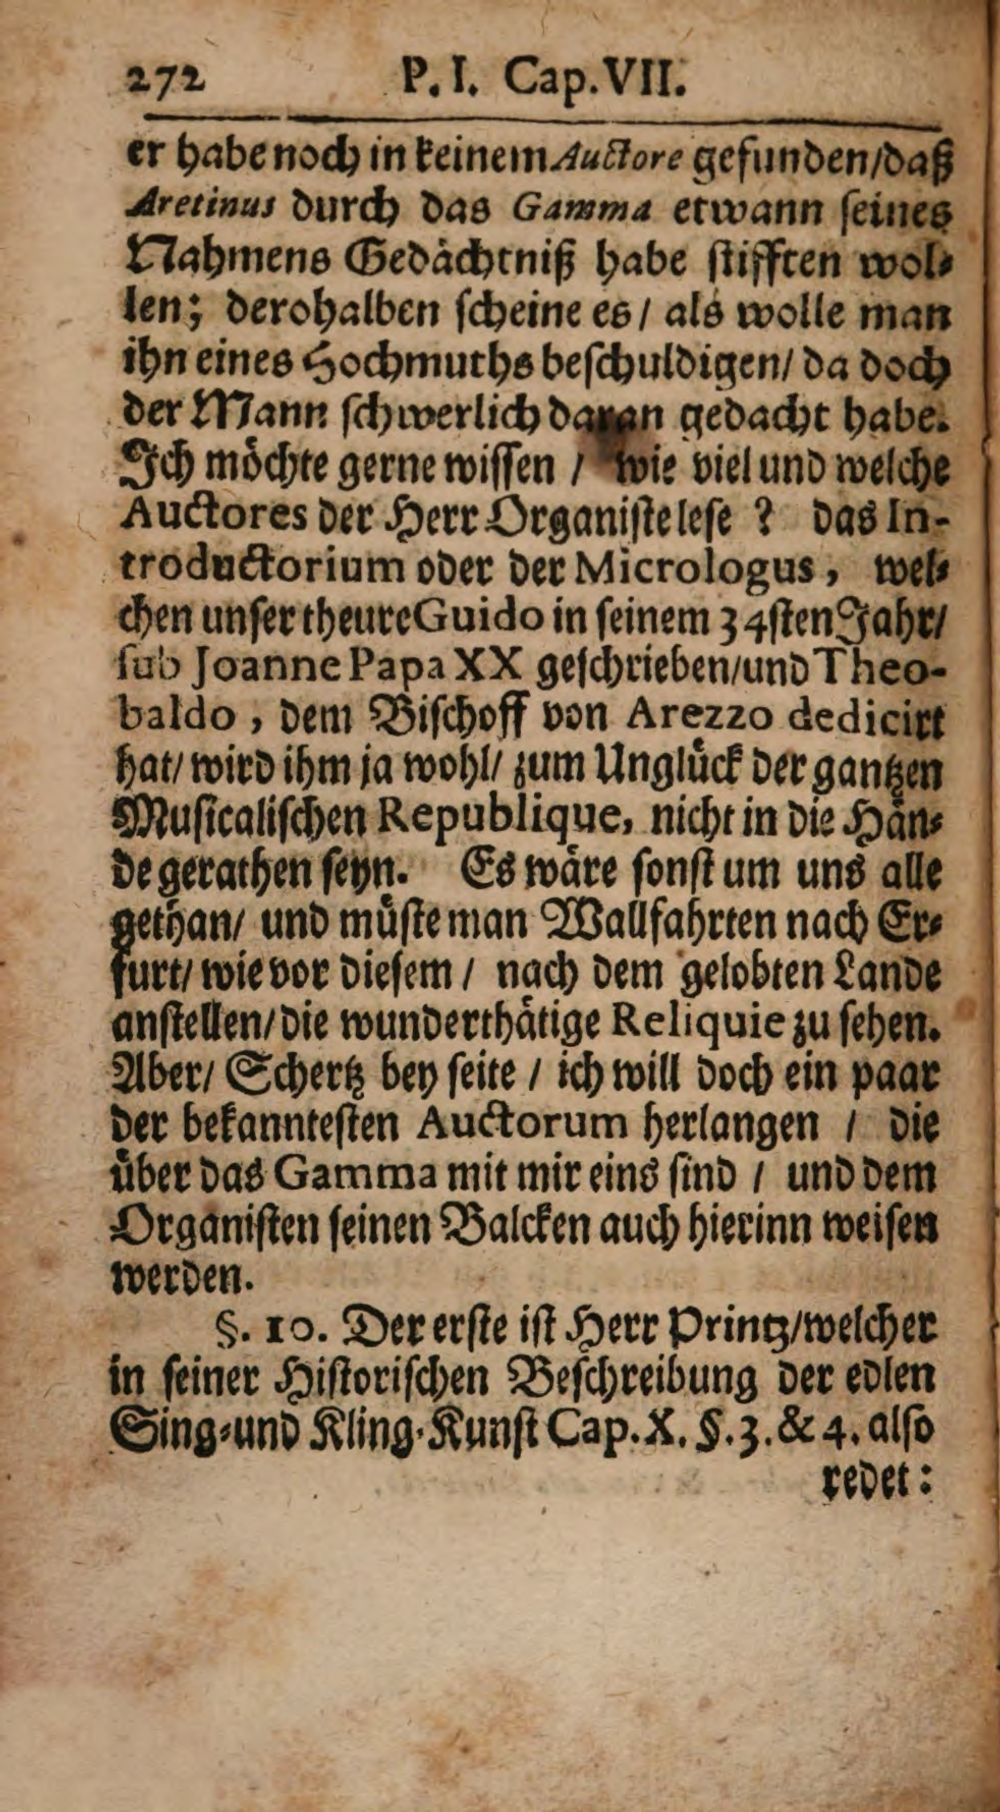 272 P. I. Cap. VII.
er habe noch in keinem Auctore gefunden/daß
Aretinus durch das Gamma etwann seines
Nahmens Gedächtniß habe stifften wol-
len; derohalben scheine es/ als wolle man
ihn eines Hochmuths beschuldigen/ da doch
der Mann schwerlich daran gedacht habe.
Ich möchte gerne wissen / wie viel und welche
Auctores der Herr Organiste lese ? das In-
troductorium oder der Micrologus, wel-
chen unser theure Guido in seinem 34sten Jahr/
sub Joanne Papa XX geschrieben/und Theo-
baldo, dem Bischoff von Arezzo dedicirt
hat/ wird ihm ja wohl/ zum Unglück der gantzen
Musicalischen Republique, nicht in die Hän-
de gerathen seyn. Es wäre sonst um uns alle
gethan/ und müste man Wallfahrten nach Er-
furt/ wie vor diesem / nach dem gelobten Lande
anstellen/die wunderthätige Reliquie zu sehen.
Aber/ Schertz bey seite / ich will doch ein paar
der bekanntesten Auctorum herlangen / die
über das Gamma mit mir eins sind / und dem
Organisten seinen Balcken auch hierinn weisen
werden.
§. 10. Der erste ist Herr Printz/welcher
in seiner Historischen Beschreibung der edlen
Sing-und Kling-Kunst Cap. X. §. 3. & 4. also
redet: